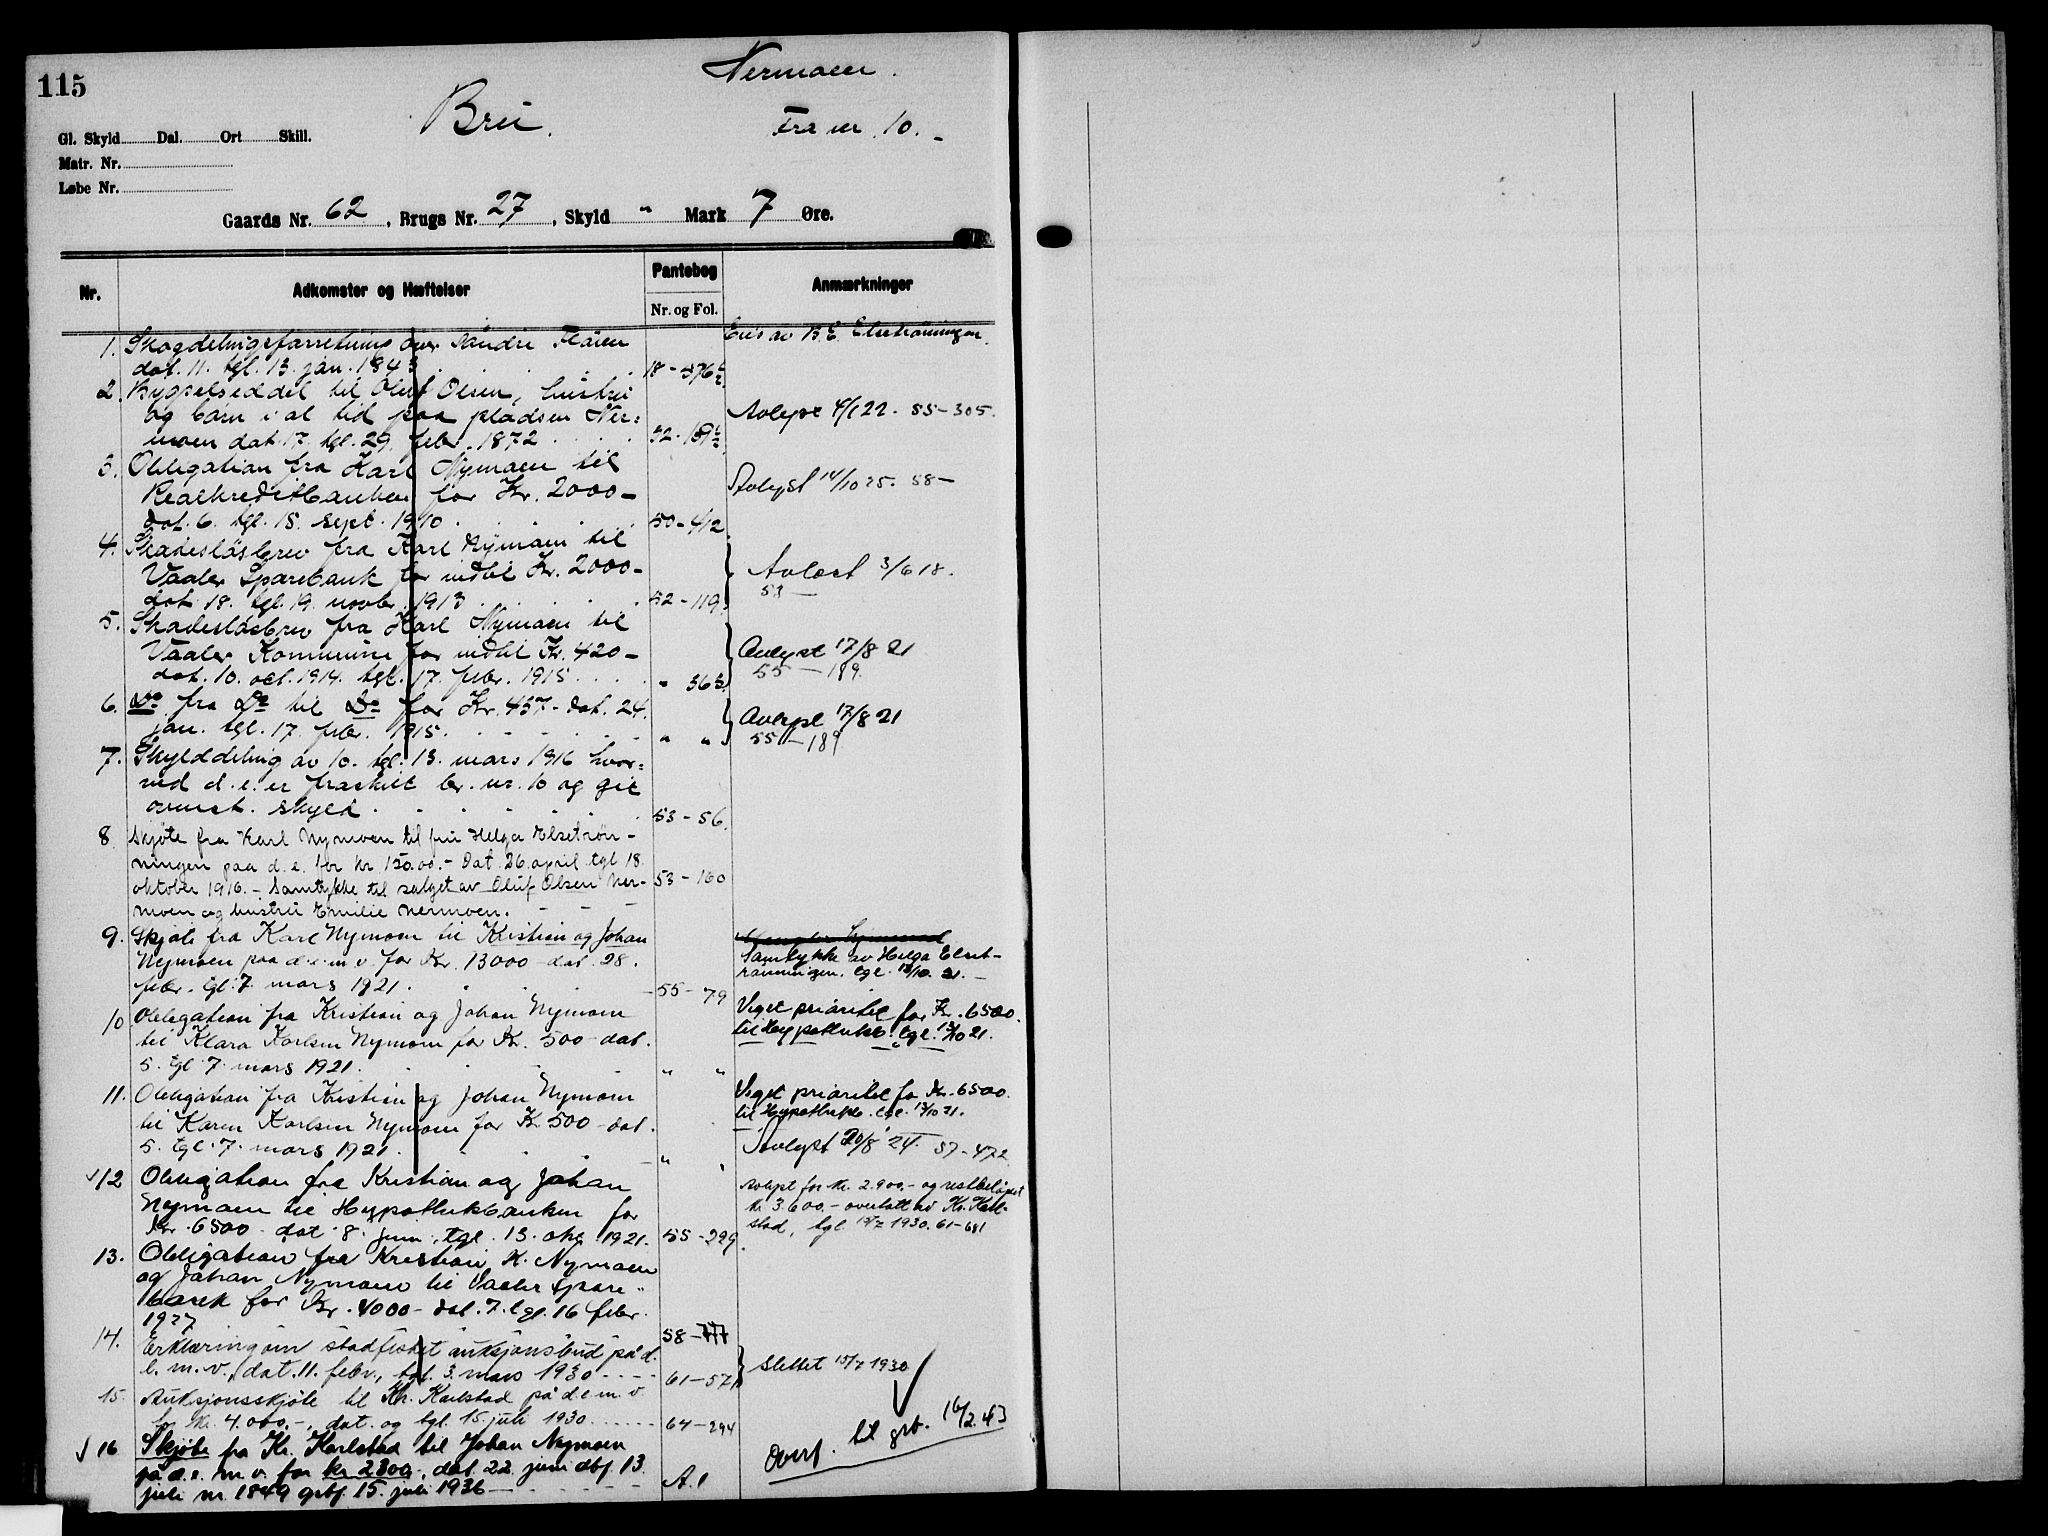 115
Nermoen.
Brei.
Fra nr 10.
Gl. Skyld Dal. Ort Skill.
Matr. Nr.
Løbe Nr.
Gaards Nr. 62, Brugs Nr. 27, Skyld " Mark 7 Øre.
Nr. Adkomster og Hæftelser Pantebog Anmærkninger
Nr. og Fol.
1. Skogdelingsforretning over Søndre
dat. 11. tgl. 13. jan. 1843 18-376
2. Bygselseddel til Oluf Olsen, hustru
og barn i al tid paa pladsen Ner=
moen dat. 17. tgl. 29. febr. 1872 32-189
Avlyst 4/1 22. 55-305.
3. Obligation fra Karl Nymoen til
Realkreditbanken for Kr. 2000-
dat. 6. tgl. 15. sept. 1910. 50-412
Avlyst 14/10 25. 58-
4. Skadesløsbrev fra Karl Nymoen til
Vaaler Sparebank for indtil Kr. 2000-
dat. 18. tgl. 19. novbr. 1913 52-119.
Avlæst 3/6 18.
53-
5. Skadesløsbrev fra Karl Nymoen til
Vaaler Kommune for indtil Kr. 420-
dat. 10. oct. 1914. tgl. 17. febr. 1915 " 363.
Avlyst 17/8 21
55-189.
6. Do fra Do til Do for Kr. 457- dat. 24.
jan. tgl. 17. febr. 1915. " "
Avlyst 17/8 21
55-189
7. Skylddeling av 10. tgl. 13. mars 1916 hvor=
ved d. e. er fraskilt br. nr. 10 og git
ovennt. skyld. 53-56.
8. Skjøte fra Karl Nymoen til fru Helga Elsetrøn-
ningen paa d. e. for kr 150.00.- Dat. 26. april tgl 18.
oktober 1916.- Samtykke til salget av Oluf Olsen Ner- 53-160
moen og hustru Emilie Nermoen.
9. Skjøte fra Karl Nymoen til Kristian og Johan
Nymoen paa d. e. m. v. for Kr. 13000- dat. 28.
febr. tgl. 7. mars 1921. 55-79
Samtykke av Helga Elset-
rønningen. tgl. 13/10. 21.-
10 Obligation fra Kristian og Johan Nymoen
til Klara Karlsen Nymoen for Kr. 500- dat.
5. tgl 7. mars 1921. " "
Veget prioritet for Kr. 6500.
til Hypothekb. tgl. 13/10 21.
11. Obligation fra Kristian og Johan Nymoen
til Karen Karlsen Nymoen for Kr 500- dat.
5. tgl. 7. mars 1921. " "
Veget prioritet for Kr. 6500.
til Hypothekb. tgl. 13/10 21.
Avlyst 20/8 24. 57-472
12 Obligation fra Kristian og Johan
Nymoen til Hypothekbanken for
Kr. 6500- dat 8. juni, tgl. 13. okt. 1921. 55-229.
Avlyst for kr. 2.900.- og restbeløpet
kr 3.600.- overtatt av Kr. Karl-
stad, tgl. 15/7 1930. 61-681
13. Obligation fra Kristian K. Nymoen
og Johan Nymoen til Vaaler Spare-
bank for Kr. 4000- dat. 7. tgl. 16 febr.
1927 58-777
14. Erklæring om stadfestet auksjonsbud på d.
e. m. v., dat. 11. febr., tgl. 3. mars 1930 61-571
Slettet 15/7 1930
15. Auksjonsskjøte til Kr. Karlstad på d. e. m. v.
for kr. 4.000.-, dat. og tgl. 15. juli 1930 64-294
16 Skjøte fra Kr. Karlstad til Johan Nymoen
på d. e. m. v. for kr 2300-, dat. 22. juni dbf. 13.
juli nr. 1849 grbf. 15. juli 1936 A. 1
Overf. til grb. 16/2. 43